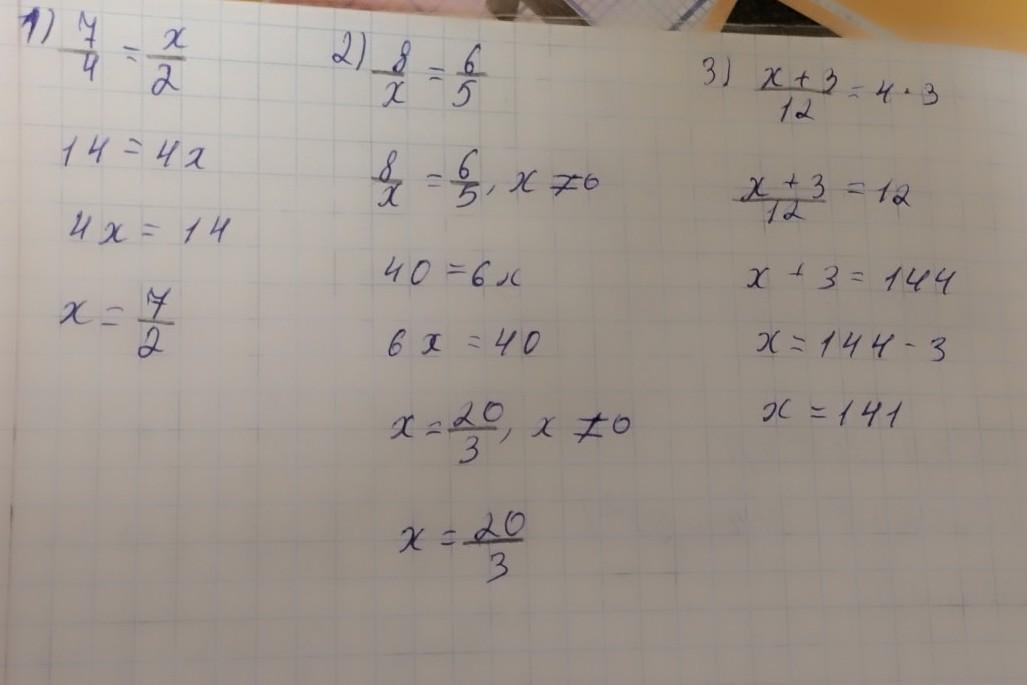 1) 7/4 = x/2
14 = 4x
4x = 14
x = 7/2
2) 8/x = 6/5
8/x = 6/5, x ≠ 0
40 = 6x
6x = 40
x = 20/3, x ≠ 0
x = 20/3
3) x + 3/12 = 4 · 3
x + 3/12 = 12
x + 3 = 144
x = 144 - 3
x = 141